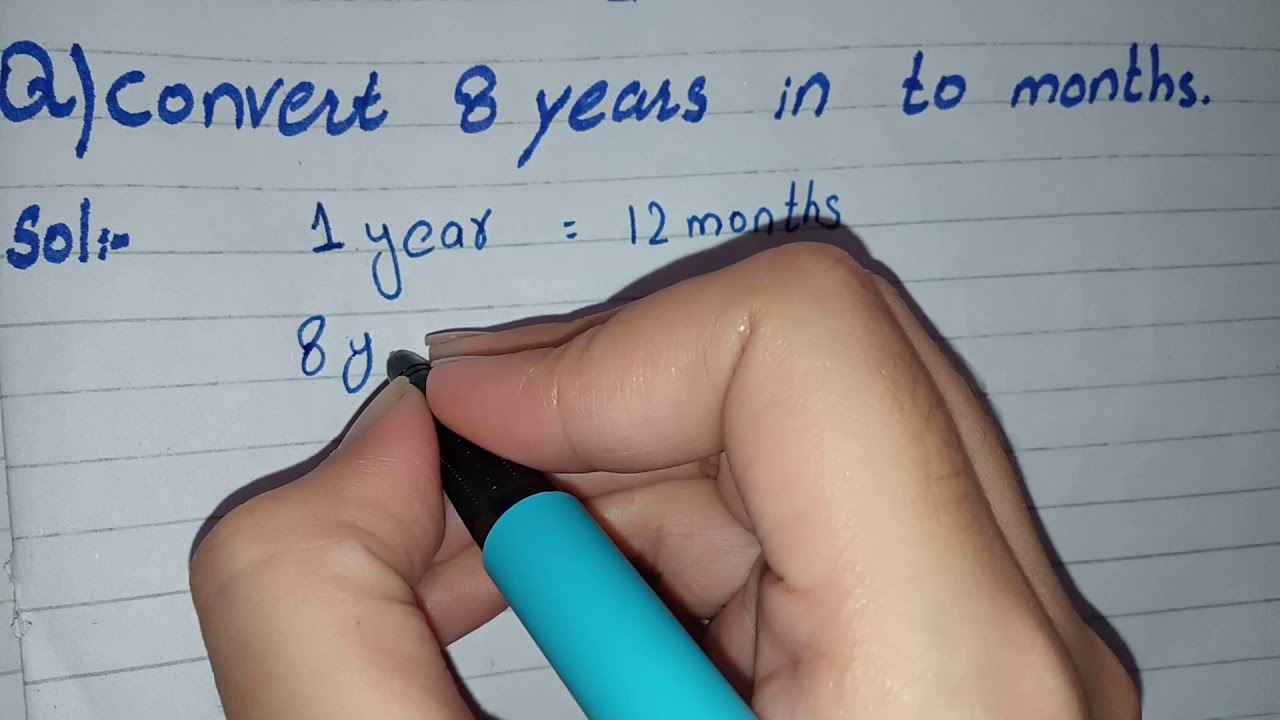 Q) Convert 8 years in to months.
Sol:- 1 year = 12 months
8 y